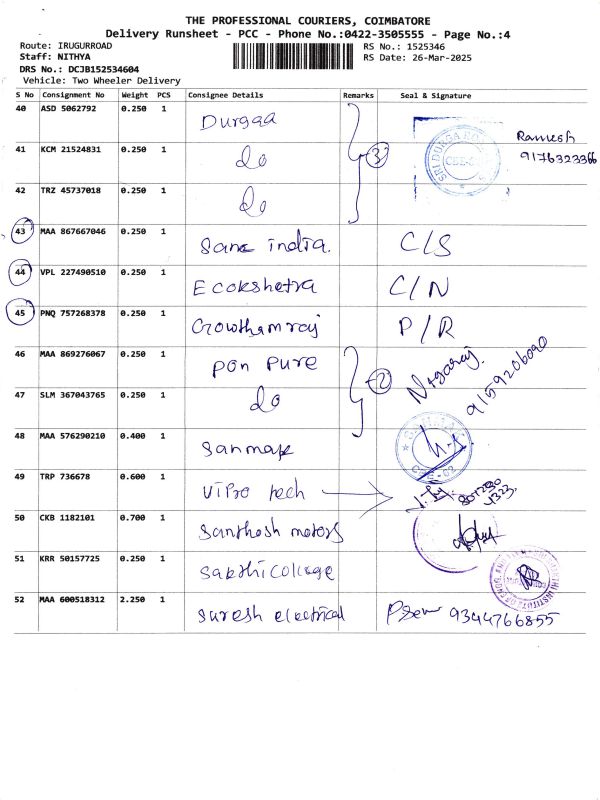 THE PROFESSIONAL COURIERS, COIMBATORE
Delivery Runsheet - PCC - Phone No.:0422-3505555 - Page No.:4
Route: IRUGURROAD RS No.: 1525346
Staff: NITHYA RS Date: 26-Mar-2025
DRS No.: DCJB152534604
Vehicle: Two Wheeler Delivery
S No Consignment No Weight PCS Consignee Details Remarks Seal & Signature
40 ASD 5062792 0.250 1 Durgaa
Ramesh
9176323366
41 KCM 21524831 0.250 1 do 3
42 TRZ 45737018 0.250 1 do
43 MAA 867667046 0.250 1 Sane india. C/S
44 VPL 227490510 0.250 1 Ecokshetra C/N
45 PNQ 757268378 0.250 1 Gowthamraj P/R
46 MAA 869276067 0.250 1 pon pure 2 Nagaraj. 9159206090
47 SLM 367043765 0.250 1 do
48 MAA 576290210 0.400 1 Sanmak
49 TRP 736678 0.600 1 Vipro tech
50 CKB 1182101 0.700 1 Santhosh motors
51 KRR 50157725 0.250 1 Sakthi College
52 MAA 600518312 2.250 1 Suresh electrical 9344766855